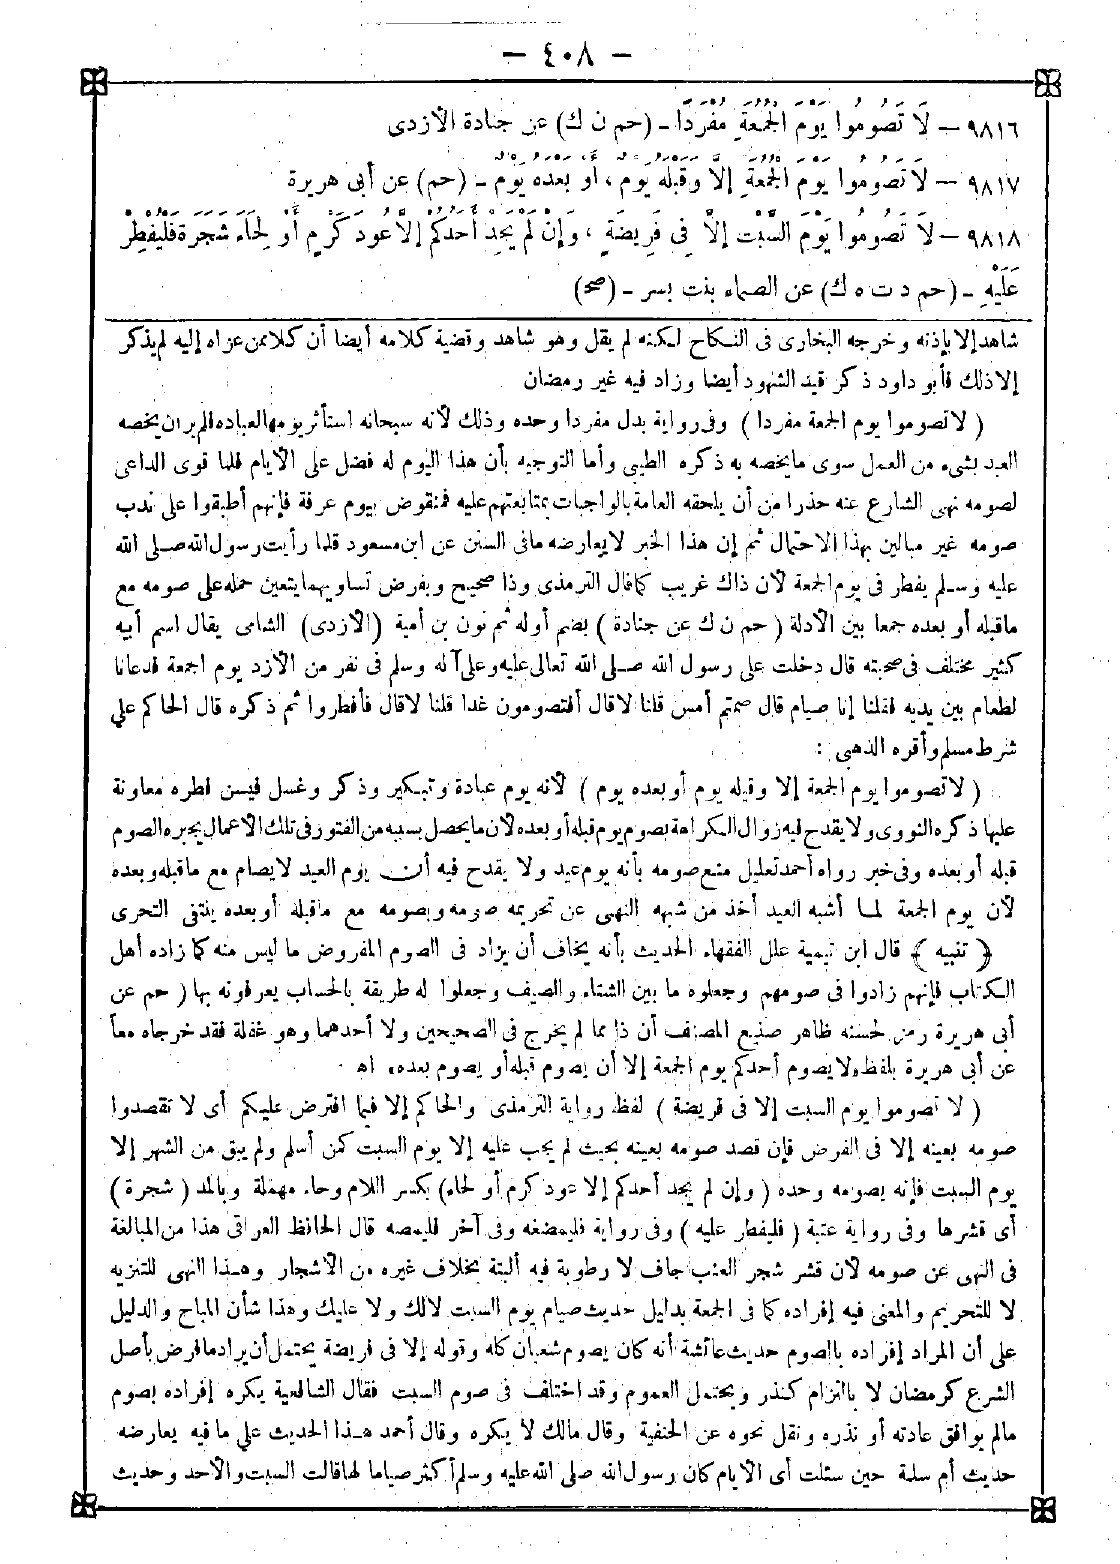 — ٤٠٨ —
٩٨١٦ – لَا تَصُومُوا يَوْمَ الْجُمُعَةِ مُفْرَدًا – (حم ن ك) عن جنادة الأزدى
٩٨١٧ – لَا تَصُومُوا يَوْمَ الْجُمُعَةِ إِلَّا وَقَبْلَهُ يَوْمٌ ، أَوْ بَعْدَهُ يَوْمٌ – (حم) عن أبى هريرة
٩٨١٨ – لَا تَصُومُوا يَوْمَ السَّبْتِ إِلَّا فِى فَرِيضَةٍ ، وَإِنْ لَمْ يَجِدْ أَحَدُكُمْ إِلَّا عُودَ كَرْمٍ أَوْ لِحَاءَ شَجَرَةٍ فَلْيُفْطِرْ
عَلَيْهِ – (حم د ت ه ك) عن الصماء بنت بسر – (صح)
شاهد إلا بإذنه وخرجه البخارى فى النكاح لكنه لم يقل وهو شاهد وقضية كلامه أيضا أن كلا ممن عزاه إليه لم يذكر
إلا ذلك فأبو داود ذكر قيد الشهود أيضا وزاد فيه غير رمضان
(لا تصوموا يوم الجمعة مفردا) وفى رواية بدل مفردا وحده وذلك لأنه سبحانه استأثر يومها لعباده فلم ير أن يخصه
العبد بشىء من العمل سوى ما يخصه به ذكره الطيبى وأما التوجيه بأن هذا اليوم له فضل على الأيام فلما قوى الداعى
لصومه نهى الشارع عنه حذرا من أن يلحقه العامة بالواجبات بمتابعتهم عليه فمنقوض بيوم عرفة فإنهم أطبقوا على ندب
صومه غير مبالين بهذا الاحتمال ثم إن هذا الخبر لا يعارضه ما فى السنن عن ابن مسعود قلما رأيت رسول الله صلى الله
عليه وسلم يفطر فى يوم الجمعة لأن ذاك غريب كما قال الترمذى وذا صحيح وبفرض تساويهما يتعين حمله على صومه مع
ما قبله أو بعده جمعا بين الأدلة (حم ن ك عن جنادة) بضم أوله ثم نون بن أمية (الأزدى) الشامى يقال اسم أبيه
كثير مختلف فى صحبته قال دخلت على رسول الله صلى الله تعالى عليه وعلى آله وسلم فى نفر من الأزد يوم الجمعة فدعانا
لطعام بين يديه فقلنا إنا صيام قال صمتم أمس قلنا لا قال أفتصومون غدا قلنا لا قال فأفطروا ثم ذكره قال الحاكم على
شرط مسلم وأقره الذهبى :
(لا تصوموا يوم الجمعة إلا وقبله يوم أو بعده يوم) لأنه يوم عبادة وتبكير وذكر وغسل فيسن فطره معاونة
عليها ذكره النووى ولا يقدح فيه زوال الكراهة بصوم يوم قبله أو بعده لأن ما يحصل بسببه من الفتور فى تلك الأعمال يجبره الصوم
قبله أو بعده وفى خبر رواه أحمد تعليل منع صومه بأنه يوم عيد ولا يقدح فيه أن يوم العيد لا يصام مع ما قبله وبعده
لأن يوم الجمعة لما أشبه العيد أخذ من شبهه النهى عن تحريمه صومه وبصومه مع ماقبله أو بعده ينتفى التحرى
﴿ تنبيه ﴾ قال ابن تيمية علل الفقهاء الحديث بأنه يخاف أن يزاد فى الصوم المفروض ما ليس منه كما زاده أهل
الكتاب فإنهم زادوا فى صومهم وجعلوه ما بين الشتاء والصيف وجعلوا له طريقة بالحساب يعرفونه بها (حم عن
أبى هريرة رمز لحسنه ظاهر صنيع المصنف أن ذا مما لم يخرج فى الصحيحين ولا أحدهما وهو غفلة فقد خرجاه معاً
عن أبى هريرة بلفظ ولا يصوم أحدكم يوم الجمعة إلا أن يصوم قبله أو يصوم بعده، اه
(لا تصوموا يوم السبت إلا فى فريضة) لفظ رواية الترمذى والحاكم إلا فيما افترض عليكم أى لا تقصدوا
صومه بعينه إلا فى الفرض فإن قصد صومه بعينه بحيث لم يجب عليه إلا يوم السبت كمن أسلم ولم يبق من الشهر إلا
يوم السبت فإنه يصومه وحده (وإن لم يجد أحدكم إلا عود كرم أو لحاء) بكسر اللام وحاء مهملة وبالمد (شجرة)
أى قشرها وفى رواية عنبة (فليفطر عليه) وفى رواية فليمضغه وفى آخر فليمصه قال الحافظ العراقى هذا من المبالغة
فى النهى عن صومه لأن قشر شجر العنب جاف لا رطوبة فيه ألبتة بخلاف غيره من الأشجار وهذا النهى للتنزيه
لا للتحريم والمعنى فيه إفراده كما فى الجمعة بدليل حديث صيام يوم السبت لا لك ولا عليك وهذا شأن المباح والدليل
على أن المراد إفراده بالصوم حديث عائشة أنه كان يصوم شعبان كله وقوله إلا فى فريضة يحتمل أن يراد ما فرض بأصل
الشرع كرمضان لا بالتزام كنذر ويحتمل العموم وقد اختلف فى صوم السبت فقال الشافعية يكره إفراده بصوم
مالم يوافق عادته أو نذره ونقل نحوه عن الحنفية وقال مالك لا يكره وقال أحمد هذا الحديث على ما فيه يعارضه
حديث أم سلمة حين سئلت أى الأيام كان رسول الله صلى الله عليه وسلم أكثر صياما لها قالت السبت والأحد وحديث